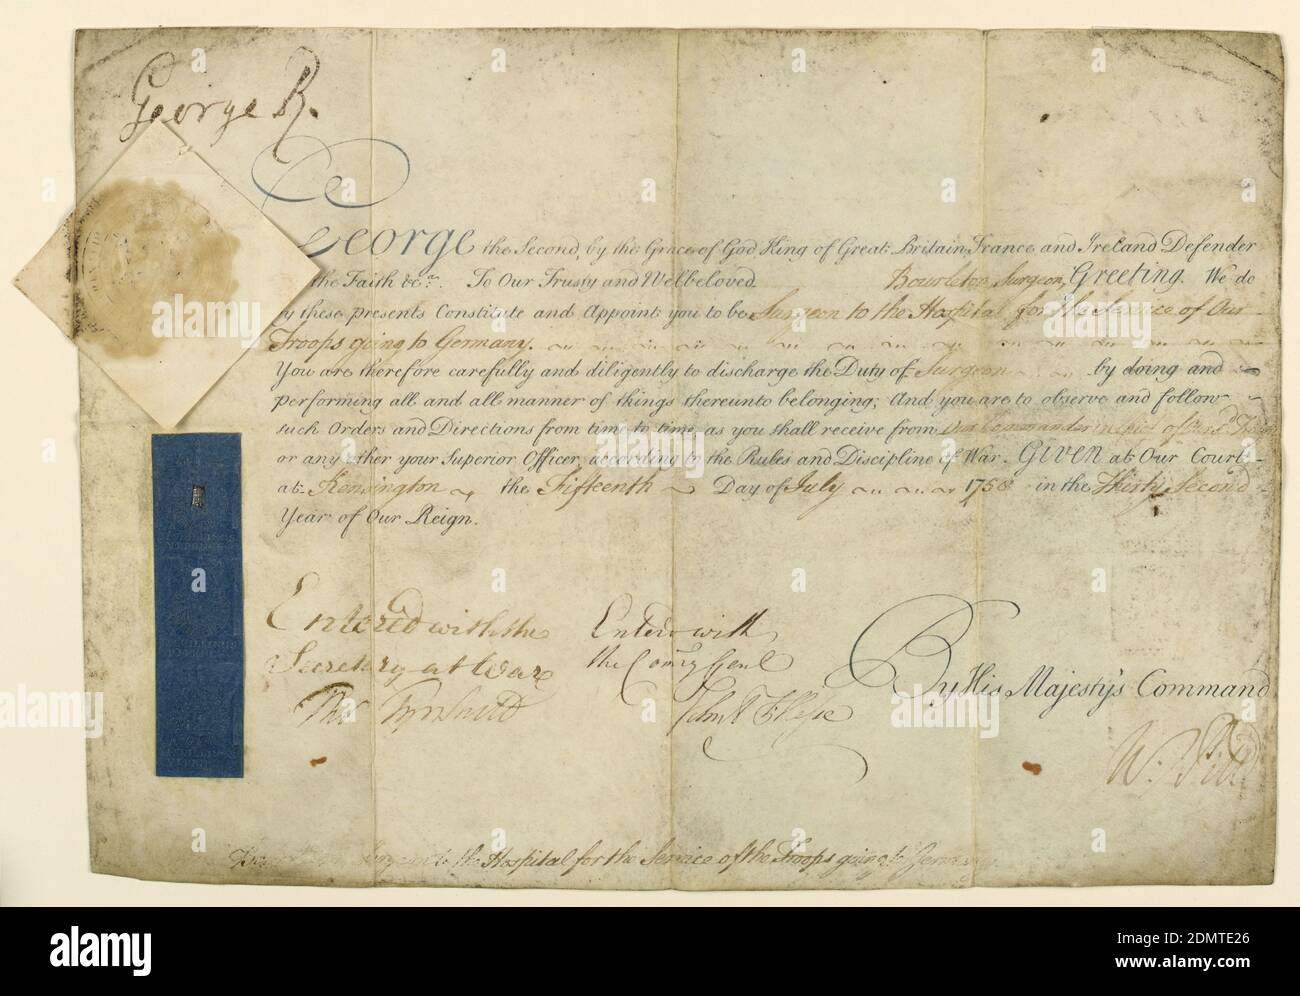 George R.
George the Second, by the Grace of God King of Great Britain, France and Ireland Defender
of the Faith &c.a To Our Trusty and Welbeloved Bourleton, Surgeon, Greeting. We do
by these presents Constitute and Appoint you to be Surgeon to the Hospital for the Service of Our
Troops going to Germany.
You are therefore carefully and diligently to discharge the Duty of Surgeon by doing and
performing all and all manner of things thereunto belonging; And you are to observe and follow
such Orders and Directions from time to time, as you shall receive from Our Commander in Chief of Our
or any other your Superior Officer, according to the Rules and Discipline of War. GIVEN at Our Court
at Kensington the Fifteenth Day of July 1758 in the Thirty Second
Year of Our Reign.
Entered with the
Secretary at War
Tho.
Enterd with
the Com.ry Genl
By His Majesty's Command
W. Pitt
Surgeon to the Hospital for the Service of the Troops going to Germany
alamy
Image ID: 2DMTE26
www.alamy.com